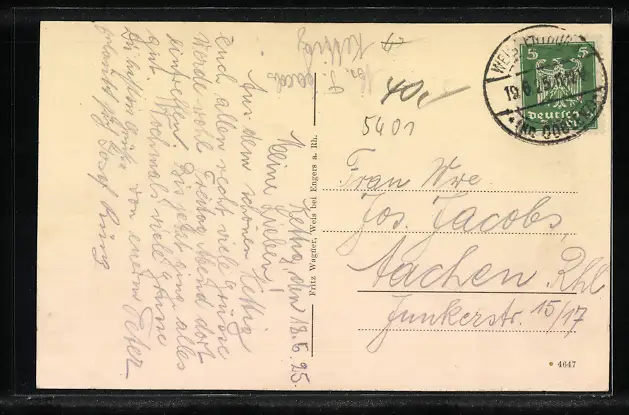 Kettig, den 18.6.25.
Meine Lieben!
Aus dem schönen Kettig
Euch allen recht viele Grüsse
Werde wohl Freitag Abend dort
eintreffen. Bis jetzt ging alles
gut. Nochmals viele Grüsse
von eurem Peter
Die besten Grüße
Josef
Fritz Wagner, Weis bei Engers a. Rh.
40,-
5401
5
5
Deutsches
19.6.25
Frau Wwe.
Jos. Jacobs,
Aachen, Rhl
Junkerstr. 15/17
4647